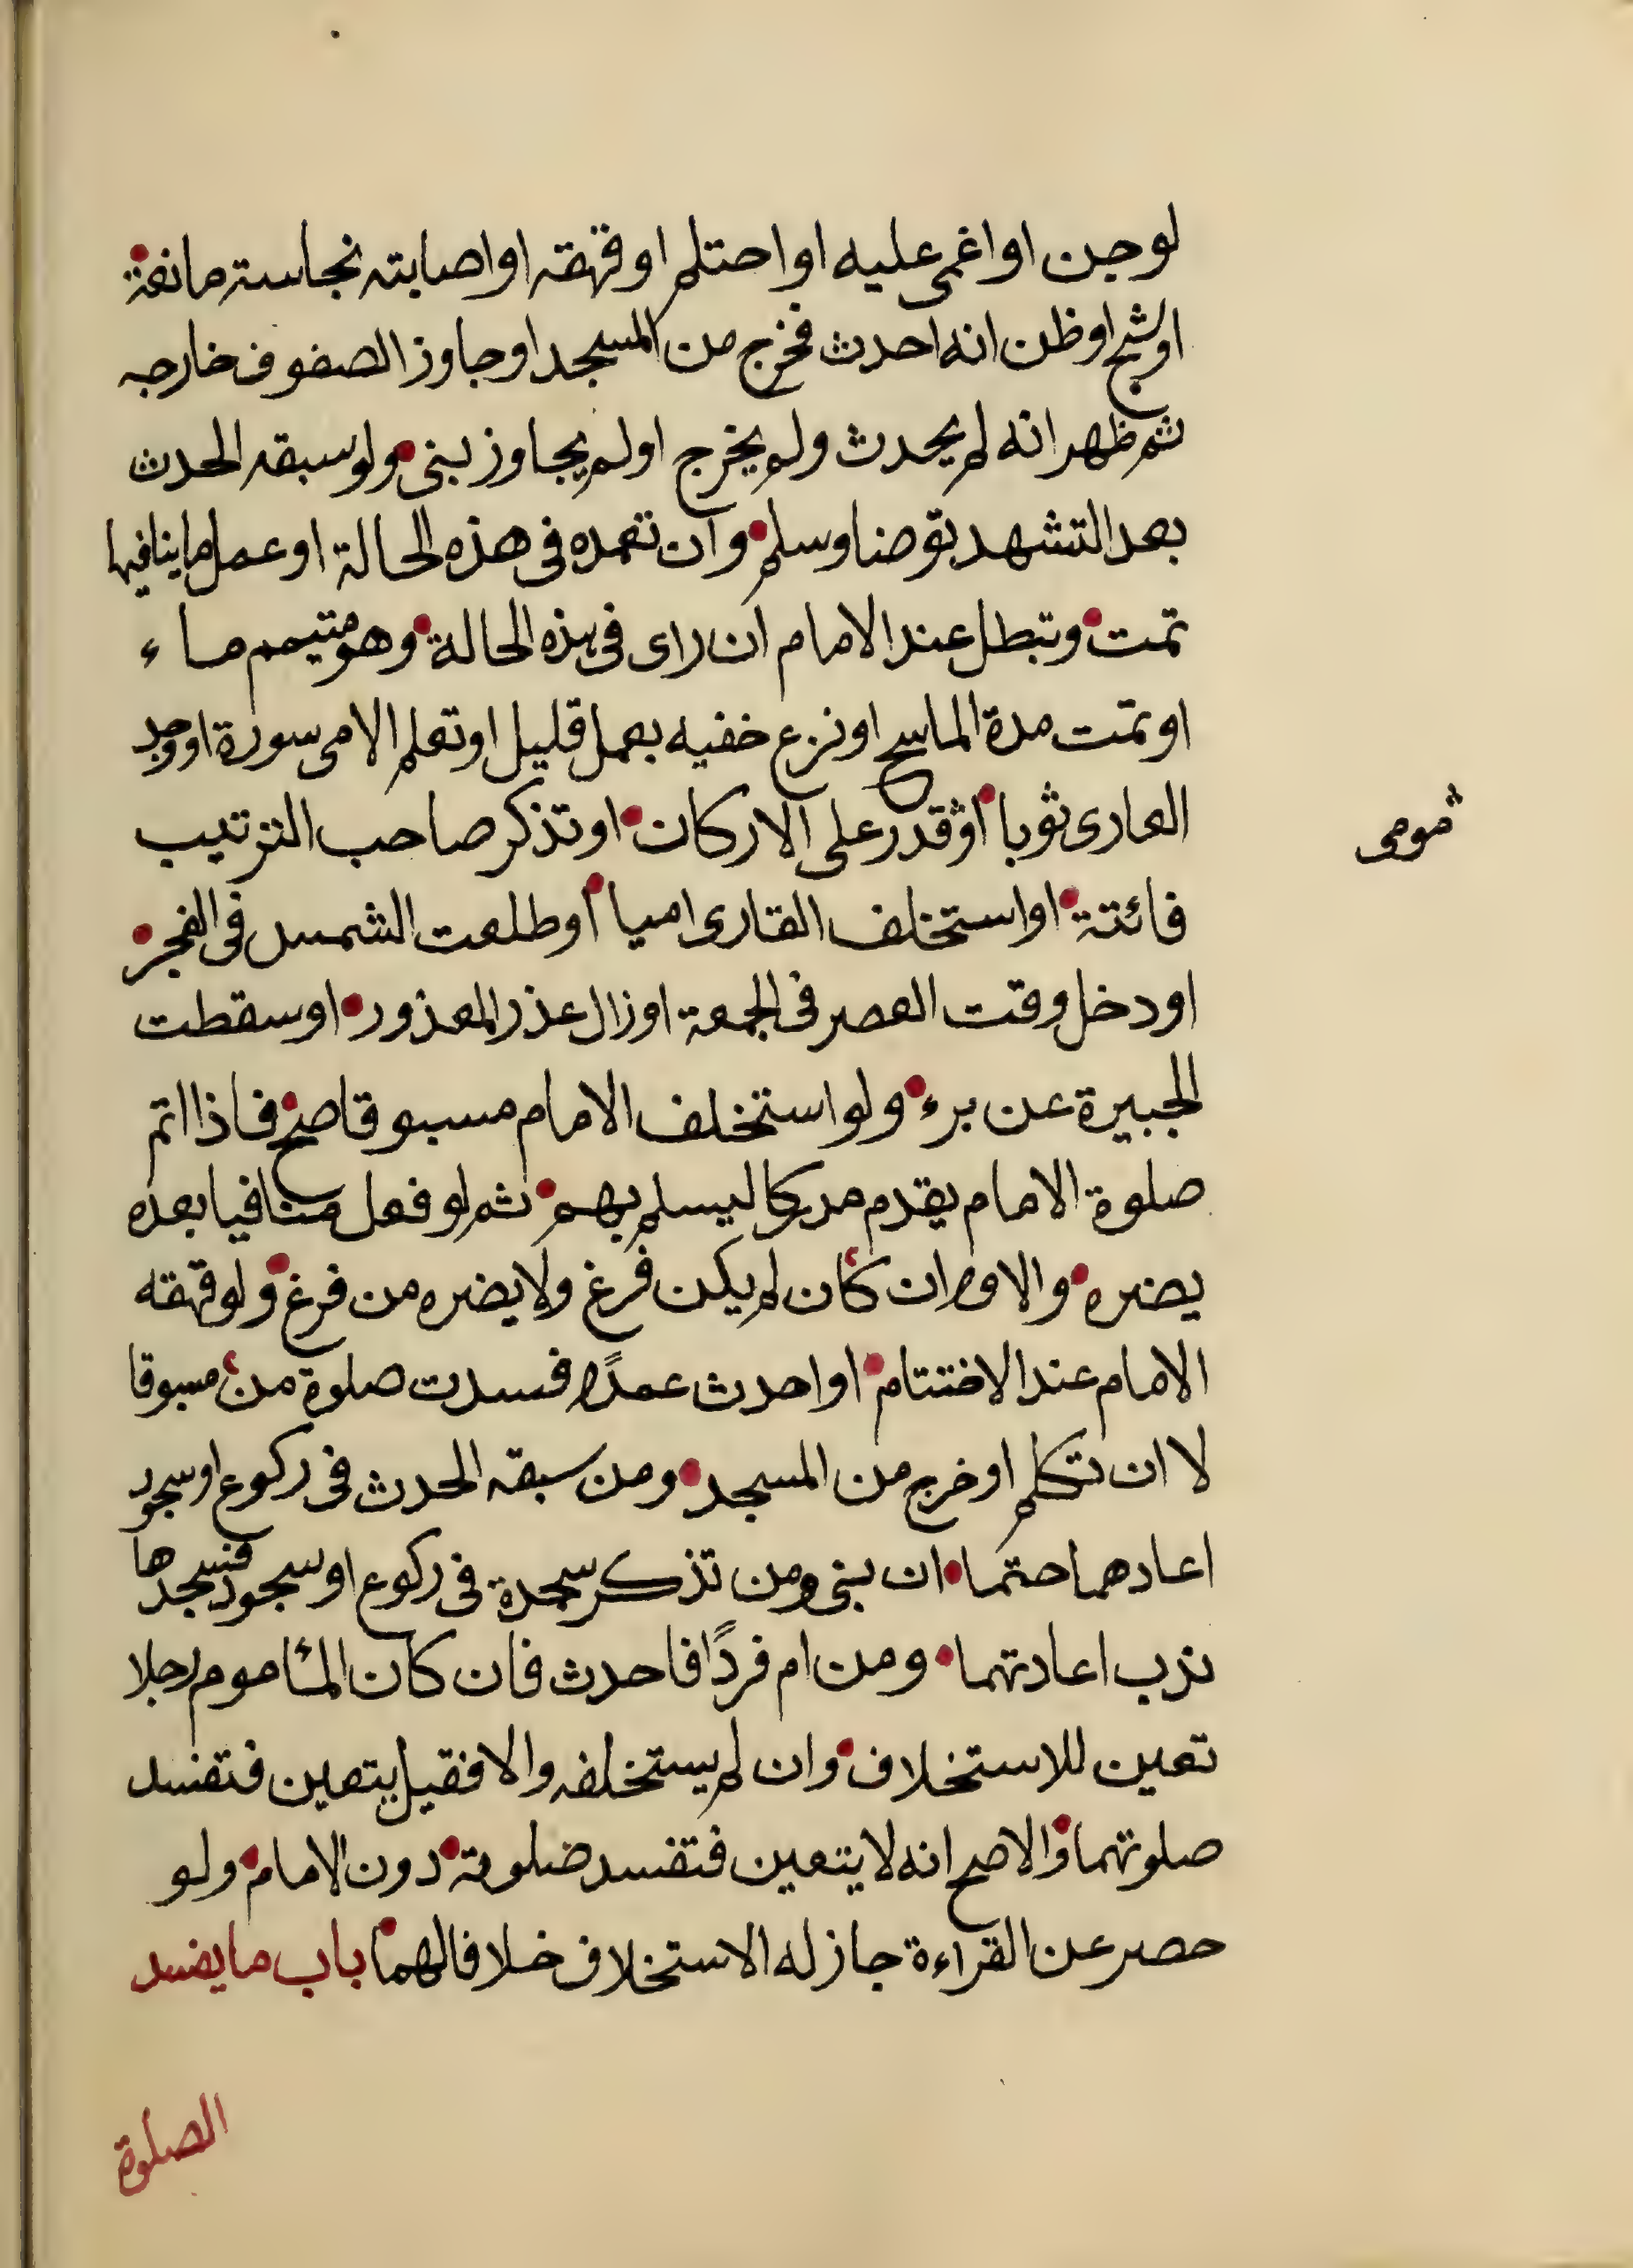 لو جن او اغمى عليه او احتلم او قهقه او اصابته نجاسة مانعة
او شج او ظن انه احدث فخرج من المسجد او جاوز الصفوف خارجه
ثم ظهر انه لم يحدث ولو لم يخرج او لم يجاوز بنى ولو سبقه الحدث
بعد التشهد توضا وسلم وان تعمده فى هذه الحالة او عمل ما ينافيها
تمت وتبطل عند الامام ان راى فى هذه الحالة وهو متيمم ماء
او تمت مدة الماسح او نزع خفيه بعمل قليل او تعلم الامى سورة او وجد
العارى ثوبا او قدر على الاركان او تذكر صاحب الترتيب
مومى
فائتة او استخلف القارى اميا او طلعت الشمس فى الفجر
او دخل وقت العصر فى الجمعة او زال عذر المعذور او سقطت
الجبيرة عن برء ولو استخلف الامام مسبوقا صح فاذا اتم
صلوة الامام يقدم مدركا ليسلم بهم ثم لو فعل منافيا بعده
يضره والاول ان كان لم يكن فرغ ولا يضره من فرغ ولو قهقه
الامام عند الاختتام او احدث عمدًا فسدت صلوة من مسبوقا
لا ان تكلم او خرج من المسجد ومن سبقه الحدث فى ركوع او سجود
اعادهما حتما ان بنى ومن تذكر سجدة فى ركوع او سجود فسجدها
ندب اعادتهما ومن ام فردًا فاحدث فان كان المأموم رجلا
تعين للاستخلاف وان لم يستخلفه والا فقيل يتعين فتفسد
صلوتهما والاصح انه لا يتعين فتفسد صلوته دون الامام ولو
حصر عن القراءة جاز له الاستخلاف خلافا لهما باب ما يفسد
الصلوة